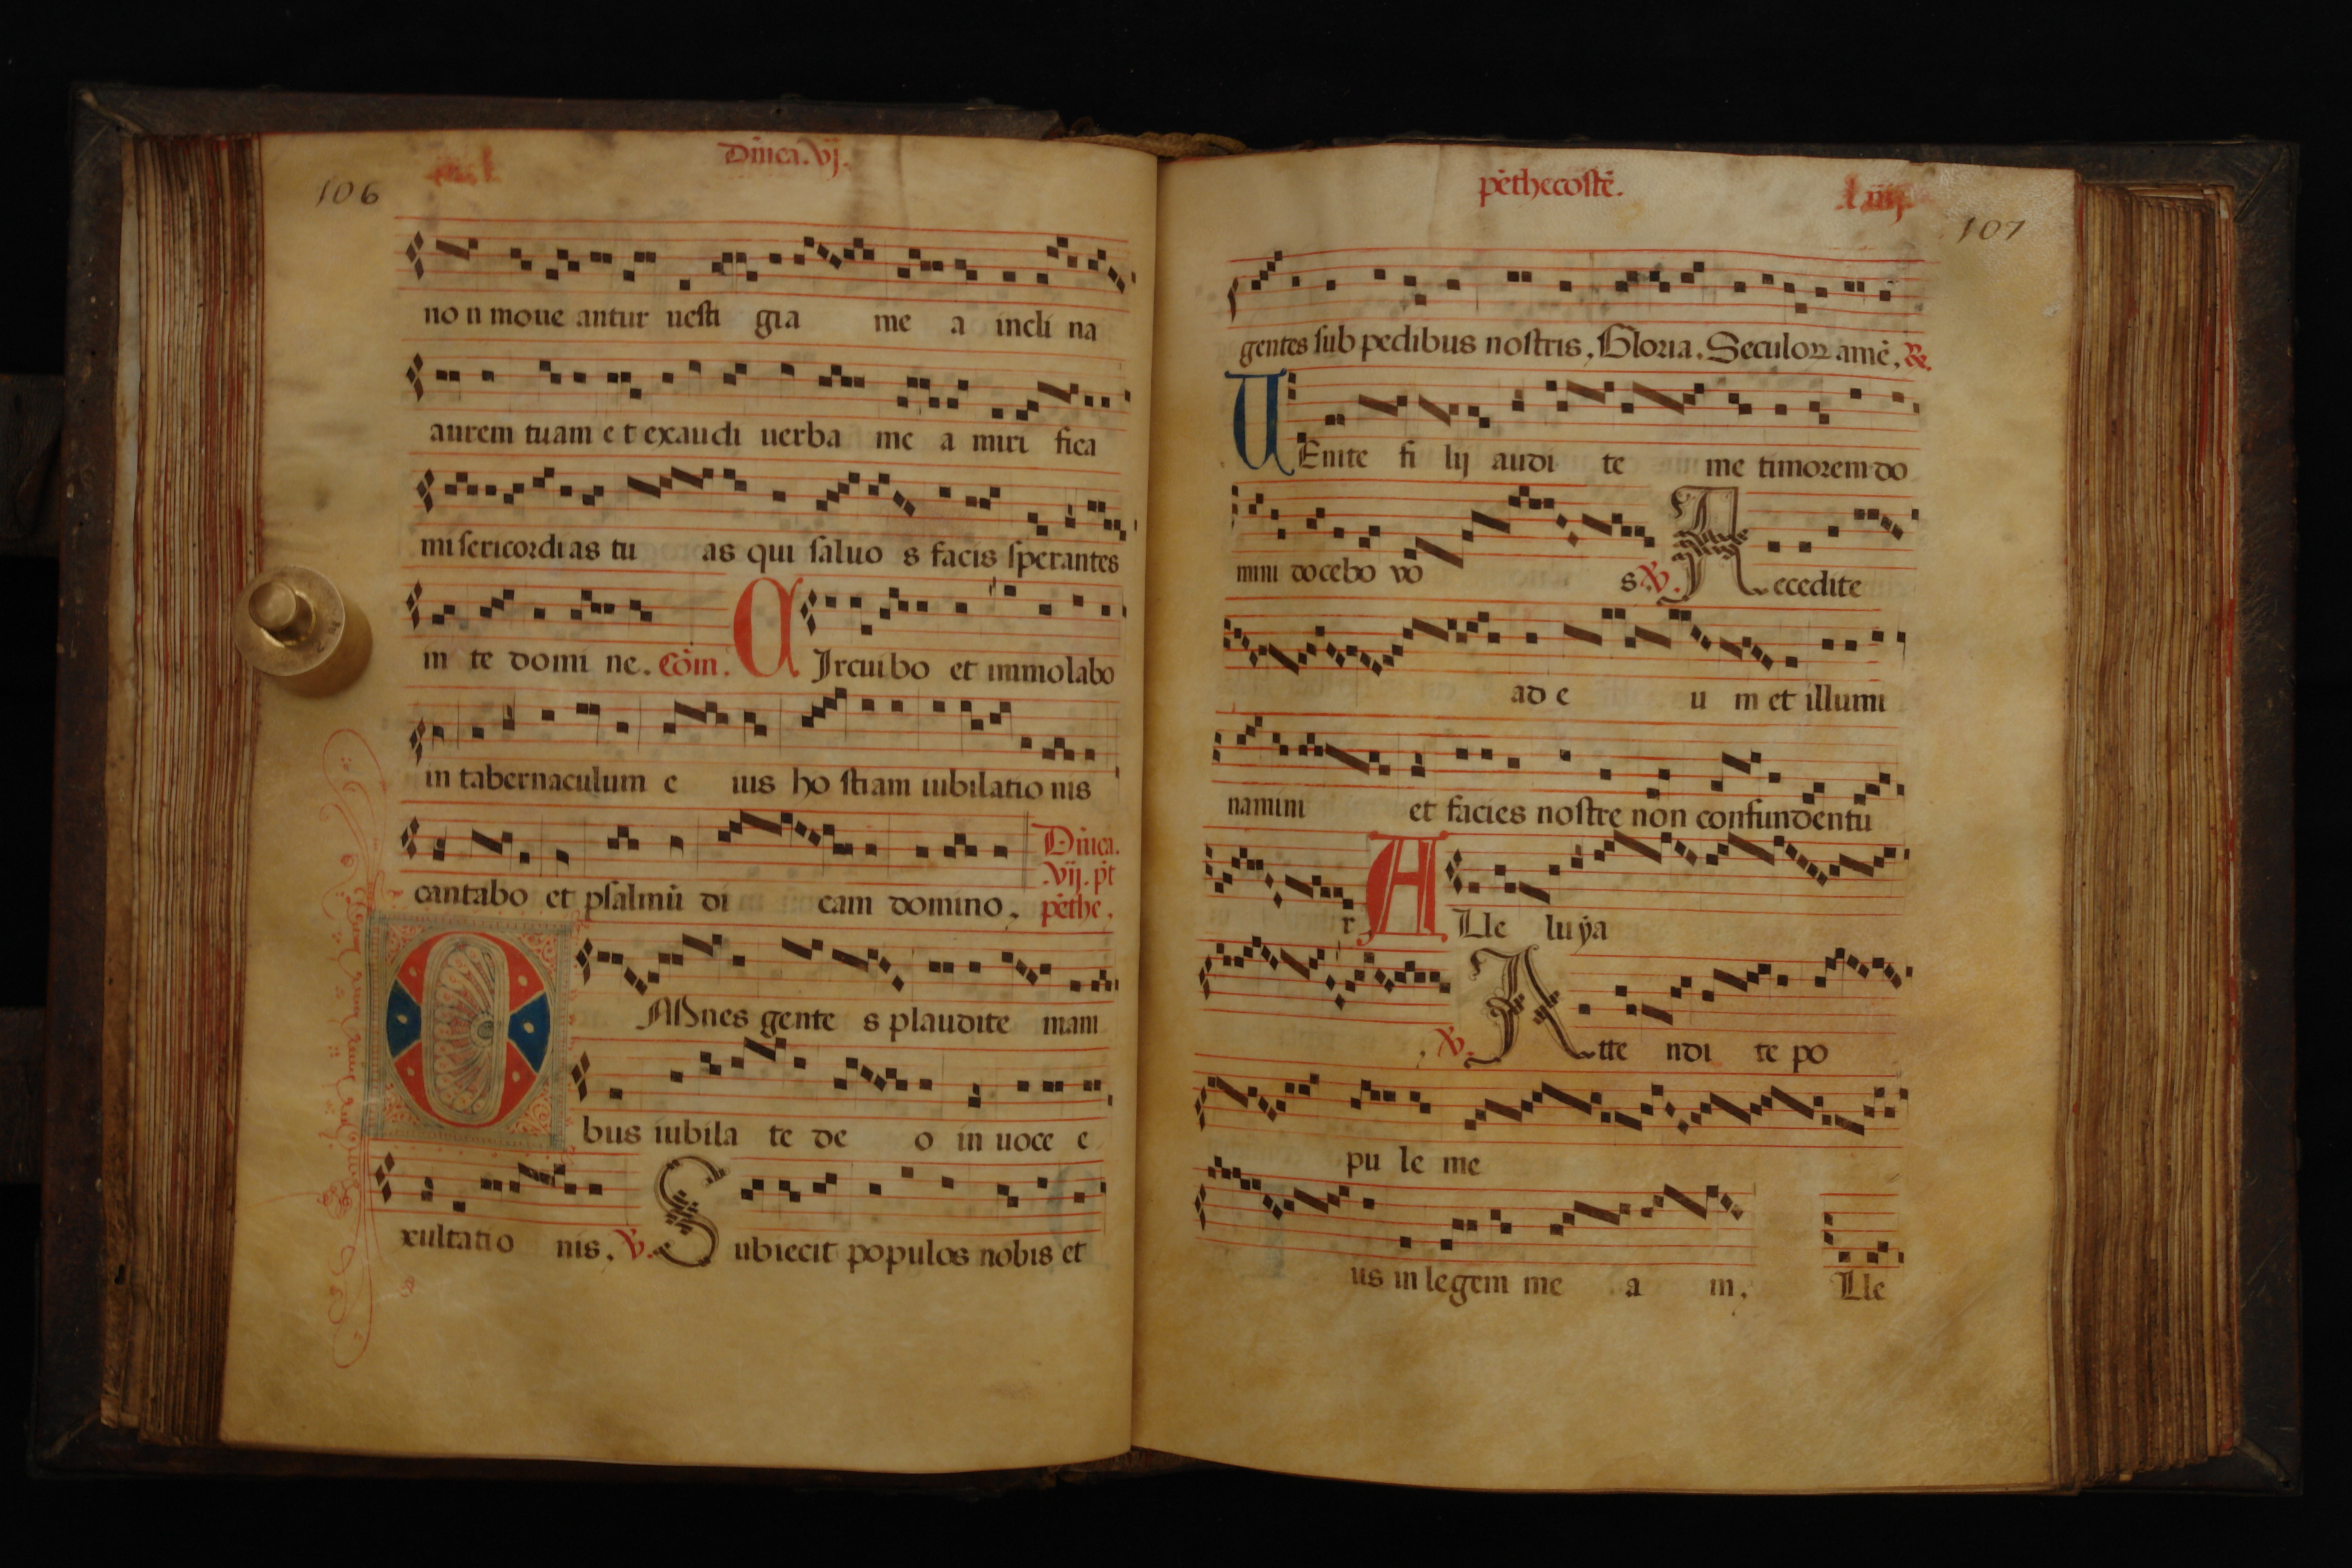 106
Dñica. vj.
no n moue antur uesti gia me a incli na
aurem tuam e t exaudi uerba me a miri fica
mi sericordi as tu as qui saluo s facis sperantes
in te domi ne. Cõm. C Ircui bo et immolabo
in tabernaculum e ius ho stiam iubilatio nis
cantabo et psalmũ di cam domino.
Dñica.
.vij. pt
pẽthe.
O MNnes gente s plaudite mani
bus iubila te de o in uoce e
xultatio nis. V. S ubiecit populos nobis et
pẽthecostẽ.
107
gentes sub pedibus nostris. Gloria. Seculoꝝ amẽ. R.
U Enite fi lij audi te me timorem do
mini docebo vo s. V. A ccedite
ad e u m et illumi
namini et facies nostre non confundentu
r A Lle lu ẏa
. V. A tte ndi te po
pu le me
us in legem me a m. Lle